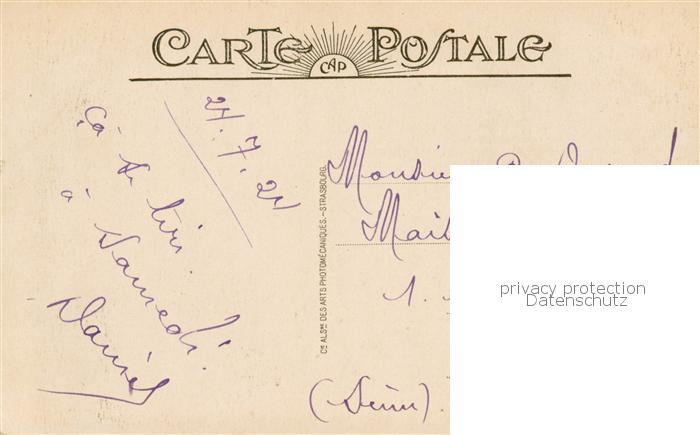 CARTE POSTALE
CAP
21.7.21
Ça se tire.
à Samedi.
Daniel
Cie ALSne DES ARTS PHOTOMÉCANIQUES. – STRASBOURG.
Monsieur
1.
privacy protection
Datenschutz